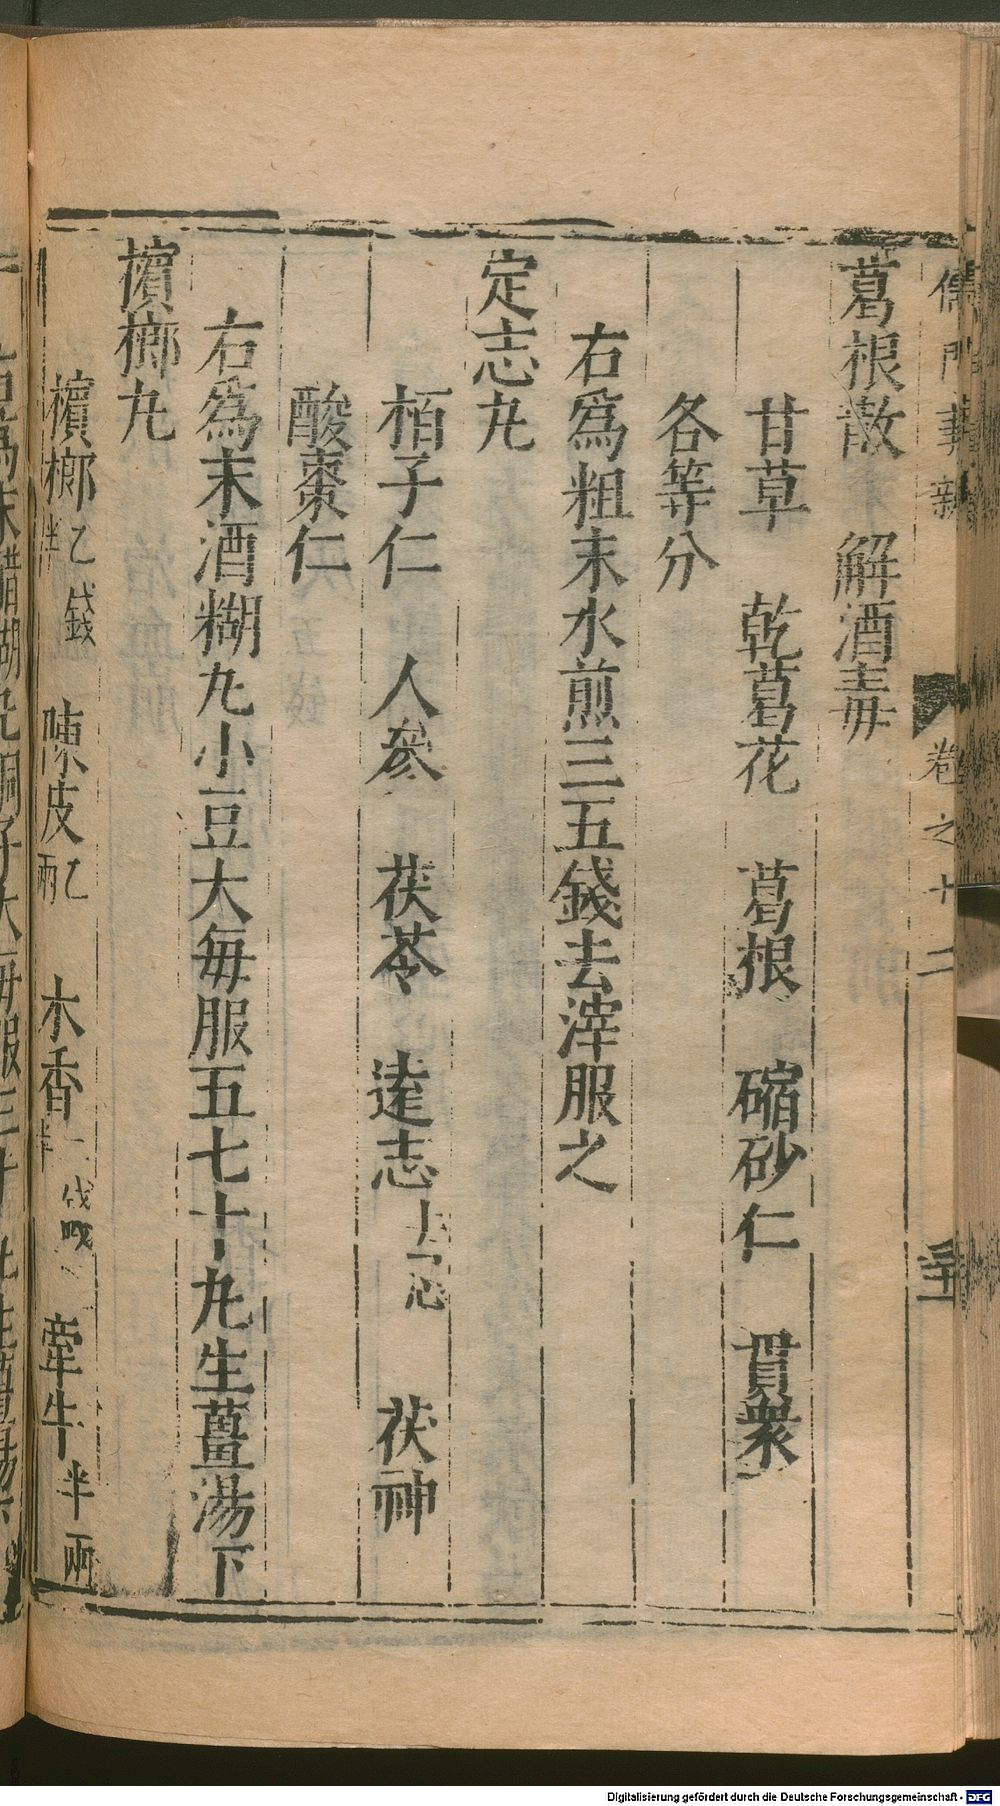 儒門事親 卷之十二
葛根散 解酒毒
甘草 乾葛花 葛根 縮砂仁 貫衆
各等分
右爲粗末水煎三五錢去滓服之
定志丸
栢子仁 人參 茯苓 遠志去心 茯神
酸棗仁
右爲末酒糊丸小豆大每服五七十丸生薑湯下
檳榔丸
檳榔乙錢半 陳皮乙兩 木香 牽牛半兩
右爲末醋糊丸桐子大每服三十丸生薑湯
Digitalisierung gefördert durch die Deutsche Forschungsgemeinschaft - DFG